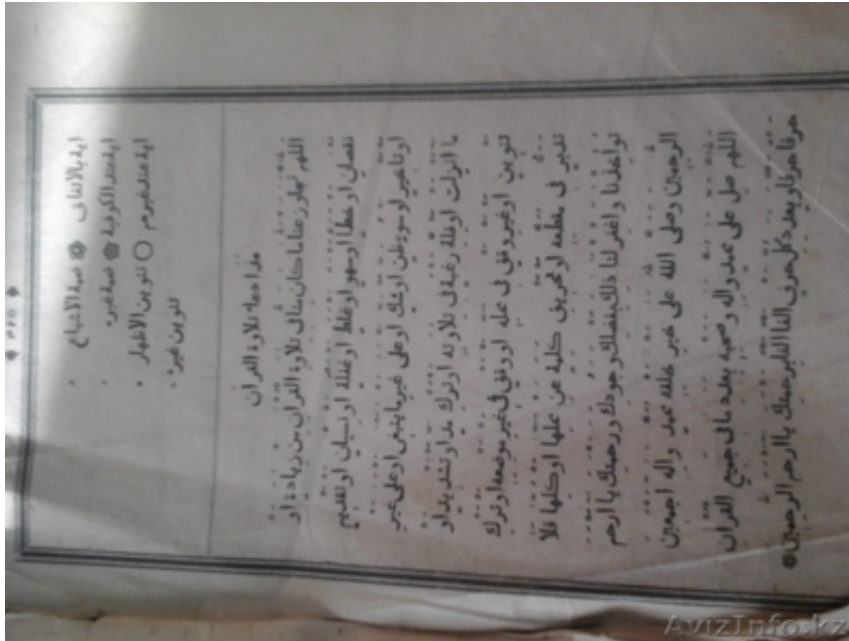 اية بالاتفاق ضمة الاشباع
اية عند الكوفية ضمة غيره
اية عند غيرهم ○ تنوين الاظهار
تنوين غيره
هذا دعاء تلاوة القران
اللهم تجاوز عنا ما كان منا في تلاوة القران من زيادة او
نقصان او خطا او سهو او غلط او غفلة او نسيان او تقديم
او تاخير او سوء ظن او شك او على غير ما ينبغي او على غير
ما انزلت او قلة رغبة في تلاوته او ترك مد او تشديد او
تنوين او غير وقف في محله او وقف في غير موضعه او ترك
تدبر في مقطعه او تحريف كلمة عن محلها او كلها فلا
تواخذنا واغفر لنا ذلك بفضلك وجودك ورحمتك يا ارحم
الرحمين وصلى الله على خير خلقه محمد واله اجمعين
اللهم صل على محمد واله وصحبه بعدد ما في جميع القران
حرفا حرفا وبعدد كل حرف الفا الفا برحمتك يا ارحم الرحمين
AvizInfo.kz